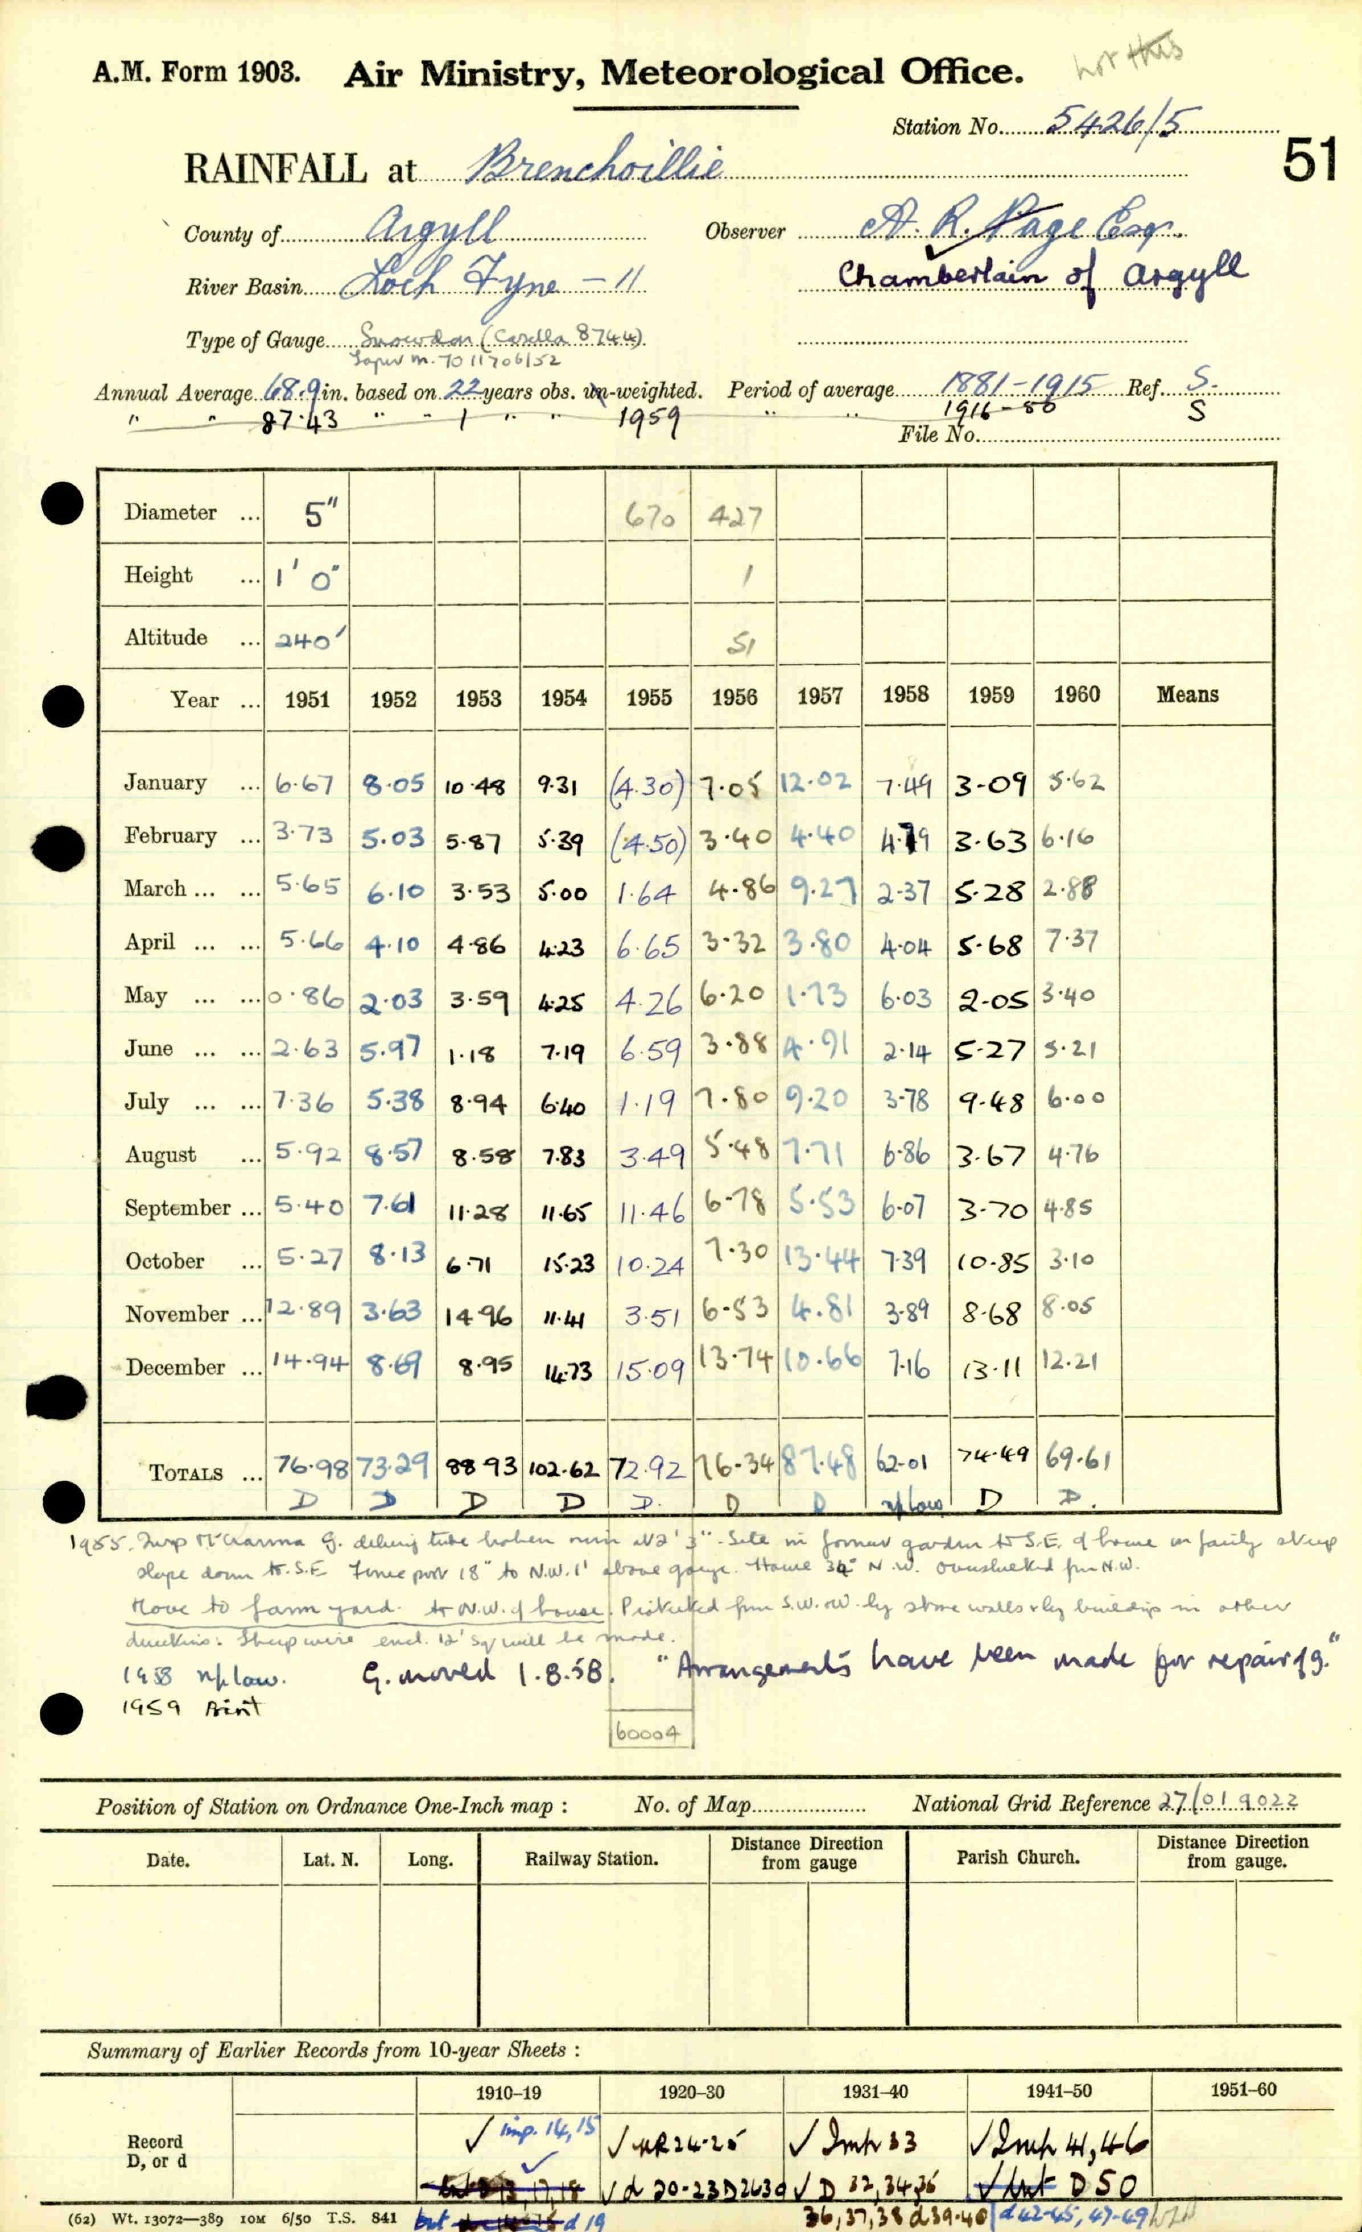 not this
A.M. Form 1903. Air Ministry, Meteorological Office.
Station No. 5426/5
51
RAINFALL at Brenchoillie
County of Argyll Observer A. R. Page Esq.
River Basin Loch Fyne - 11 Chamberlain of Argyll
Type of Gauge Snowdon (Casella 8744)
70 11706/52
Annual Average 68.9 in. based on 22 years obs. un-weighted. Period of average 1881-1915 Ref. S.
" " 87.43 " " 1 " " 1959 " " 1916-50 S
File No.
Diameter ... 5" 670 427
Height ... 1' 0" 1
Altitude ... 240' 51
Year ... 1951 1952 1953 1954 1955 1956 1957 1958 1959 1960 Means
January ... 6.67 8.05 10.48 9.31 (4.30) 7.05 12.02 7.49 3.09 5.62
February ... 3.73 5.03 5.87 5.39 (4.50) 3.40 4.40 4.79 3.63 6.16
March ... ... 5.65 6.10 3.53 5.00 1.64 4.86 9.27 2.37 5.28 2.88
April ... ... 5.66 4.10 4.86 4.23 6.65 3.32 3.80 4.04 5.68 7.37
May ... ... 0.86 2.03 3.59 4.25 4.26 6.20 1.73 6.03 2.05 3.40
June ... ... 2.63 5.97 1.18 7.19 6.59 3.88 4.91 2.14 5.27 5.21
July ... ... 7.36 5.38 8.94 6.40 1.19 7.80 9.20 3.78 9.48 6.00
August ... 5.92 8.57 8.58 7.83 3.49 5.48 7.71 6.86 3.67 4.76
September ... 5.40 7.61 11.28 11.65 11.46 6.78 5.53 6.07 3.70 4.85
October ... 5.27 8.13 6.71 15.23 10.24 7.30 13.44 7.39 10.85 3.10
November ... 12.89 3.63 14.96 11.41 3.51 6.53 4.81 3.89 8.68 8.05
December ... 14.94 8.69 8.95 14.73 15.09 13.74 10.66 7.16 13.11 12.21
TOTALS ... 76.98 73.29 88.93 102.62 72.92 76.34 87.48 62.01 74.49 69.61
D D D D D. D D low D D.
1955. Insp G. tube broken rim at 2' 3". Site in former garden to S.E. of house on fairly steep
slope down to S.E. Fence post 18" to N.W. 1' above gauge. House N.W. Oversheltered from N.W.
Move to farm yard to N.W. of house. Protected from S.W. & W. by stone walls & by buildings in other
directions. Sheep wire encl. 12' sq will be made.
1958 low. G. moved 1.8.58. "Arrangements have been made for repair of g."
1959
60004
Position of Station on Ordnance One-Inch map : No. of Map National Grid Reference 27/019022
Date. Lat. N. Long. Railway Station. Distance Direction from gauge Parish Church. Distance Direction from gauge.
Summary of Earlier Records from 10-year Sheets :
1910–19 1920–30 1931–40 1941–50 1951–60
Record D, or d
✓ imp. 14, 15 ✓ 24-25 ✓ Imp 33 ✓ Imp 41, 46
✓ d 20-23 D2630 ✓ D 32,34,35 ✓ D 50
but d 19 36, 37, 38 d 39-40 d 42-45, 47-49
(62) Wt. 13072—389 10M 6/50 T.S. 841